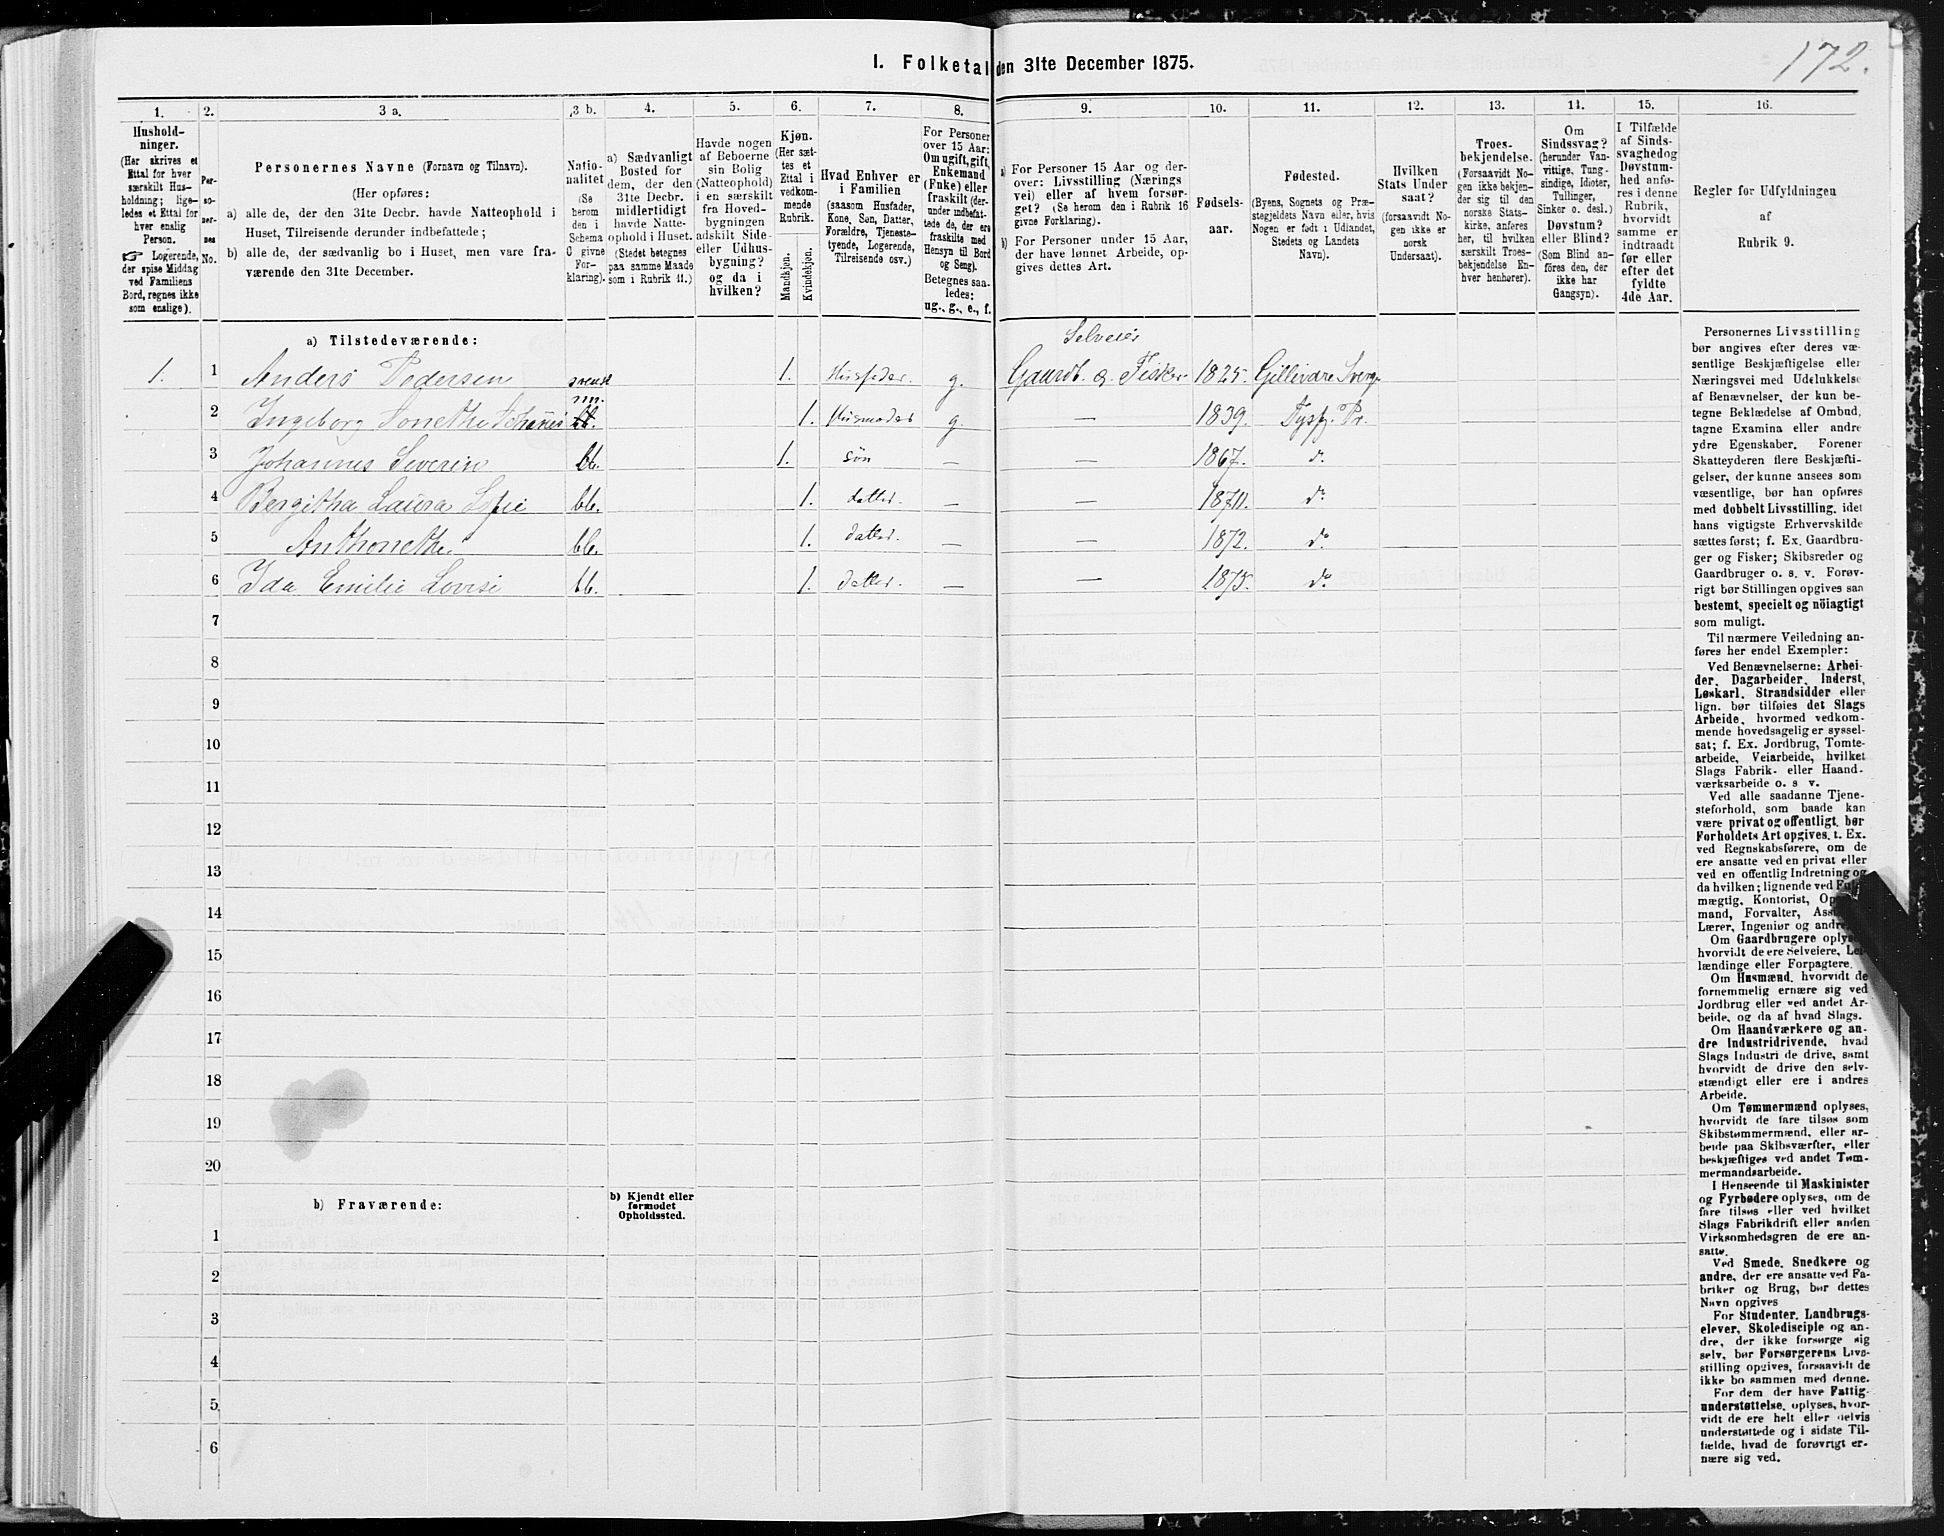 172.
I. Folketal den 31te December 1875.
1. 2. 3 a. 3 b. 4. 5. 6. 7. 8. 9. 10. 11. 12. 13. 14. 15. 16.
Hushold-
ninger.
(Her skrives et
Ettal for hver
særskilt Hus-
holdning; lige-
ledes et Ettal for
hver enslig
Person.
☞ Logerende,
der spise Middag
ved Familiens
Bord, regnes ikke
som enslige).
Per-
so-
ner-
nes
No.
Personernes Navne (Fornavn og Tilnavn).
(Her opføres:
a) alle de, der den 31te Decbr. havde Natteophold i
Huset, Tilreisende derunder indbefattede;
b) alle de, der sædvanlig bo i Huset, men vare fra-
værende den 31te December.
Natio-
nalitet
(Se
herom
den i
Schema
C givne
For-
klaring).
a) Sædvanligt
Bosted for
dem, der den
31te Decbr.
midlertidigt
havde Natte-
ophold i Huset.
(Stedet betegnes
paa samme Maade
som i Rubrik 11.)
Havde nogen
af Beboerne
sin Bolig
(Natteophold)
i en særskilt
fra Hoved-
bygningen
adskilt Side-
eller Udhus-
bygning?
og da i
hvilken?
Kjøn.
(Her sæt-
tes et
Ettal i
vedkom-
mende
Rubrik.
Mandkjøn.
Kvindekjøn.
Hvad Enhver er
i Familien
(saasom Husfader,
Kone, Søn, Datter,
Forældre, Tjeneste-
tyende, Logerende,
Tilreisende osv.)
For Personer
over 15 Aar:
Om ugift, gift,
Enkemand
(Enke) eller
fraskilt (der-
under indbefat-
tede de, der ere
fraskilte med
Hensyn til Bord
og Seng).
Betegnes saa-
ledes:
ug., g., e., f.
a) For Personer 15 Aar og der-
over: Livsstilling (Nærings
vei) eller af hvem forsør-
get? (Se herom den i Rubrik 16
givne Forklaring).
b) For Personer under 15 Aar,
der have lønnet Arbeide, op-
gives dettes Art.
Fødsels-
aar.
Fødested.
(Byens, Sognets og Præ-
stegjeldets Navn eller, hvis
Nogen er født i Udlandet,
Stedets og Landets
Navn).
Hvilken
Stats Under
saat?
(forsaavidt No-
gen ikke er
norsk
Undersaat).
Troes-
bekjendelse.
(Forsaavidt No-
gen ikke bekjen-
der sig til den
norske Stats-
kirke, anføres
her, til hvilken
særskilt Troes-
bekjendelse En-
hver henhører).
Om
Sindssvag?
(herunder Van-
vittige, Tung-
sindige, Idioter,
Tullinger,
Sinker o. desl.)
Døvstum?
eller Blind?
(Som Blind an-
føres den, der
ikke har
Gangsyn).
I Tilfælde
af Sinds-
svaghed og
Døvstum-
hed anfø-
res i denne
Rubrik,
hvorvidt
samme er
indtraadt
før eller
efter det
fyldte
4de Aar.
Regler for Udfyldningen
af
Rubrik 9.
a) Tilstedeværende:
Selveier
1. 1 Anders Pedersen svensk 1. Husfader. g. Gaardb. og Fisker 1825. Gillevare Sverge
nn.
2 Ingeborg 1. Husmoder g. — 1839. Tysf. Pr.
3 Johannes Severin bb. 1. søn — — 1867. do.
4 Bergitha Laura Sofie bb. 1. datter. — — 1871. do
5 Anthonethe bb. 1. datter. — — 1872. do.
6 Ida Emilie Lovise bb. 1. datter. — — 1875. do.
7
8
9
10
11
12
13
14
15
16
17
18
19
20
b) Fraværende:
b) Kjendt eller
formodet
Opholdssted.
1
2
3
4
5
6
Personernes Livsstilling
bør angives efter deres væ-
sentlige Beskjæftigelse eller
Næringsvei med Udelukkelse
af Benævnelser, der kun be-
tegne Beklædelse af Ombud,
tagne Examina eller andre
ydre Egenskaber. Forener
Skatteyderen flere Beskjæfti-
gelser, der kunne ansees som
væsentlige, bør han opføres
med dobbelt Livsstilling, idet
hans vigtigste Erhvervskilde
sættes først; f. Ex. Gaardbru-
ger og Fisker; Skibsreder og
Gaardbruger o. s. v. Forøv-
rigt bør Stillingen opgives saa
bestemt, specielt og nöiagtigt
som muligt.
Til nærmere Veiledning an-
føres her endel Exempler:
Ved Benævnelserne: Arbei-
der, Dagarbeider, Inderst,
Løskarl, Strandsidder eller
lign. bør tilføies det Slags
Arbeide, hvormed vedkom-
mende hovedsagelig er syssel-
sat; f. Ex. Jordbrug, Tomte-
arbeide, Veiarbeide, hvilket
Slags Fabrik- eller Haand-
værksarbeide o. s. v.
Ved alle saadanne Tjene-
steforhold, som baade kan
være privat og offentligt, bør
Forholdets Art opgives, t. Ex.
ved Regnskabsførere, om de
ere ansatte ved en privat eller
ved en offentlig Indretning og
da hvilken; lignende ved
mægtig, Kontorist,
mand, Forvalter,
Lærer, Ingeniør og
Om Gaardbrugere
hvorvidt de ere Selveiere,
lændinge eller Forpagtere.
Om Husmænd, hvorvidt de
fornemmelig ernære sig ved
Jordbrug eller ved andet Ar-
beide, og da af hvad Slags.
Om Haandværkere og an-
dre Industridrivende, hvad
Slags Industri de drive, samt
hvorvidt de drive den selv-
stændigt eller ere i andres
Arbeide.
Om Tømmermænd oplyses,
hvorvidt de fare tilsøs som
Skibstømmermænd, eller ar-
beide paa Skibsværfter, eller
beskjæftiges ved andet Tøm-
mermandsarbeide.
I Henseende til Maskinister
og Fyrbødere oplyses, om de
fare tilsøs eller ved hvilket
Slags Fabrikdrift eller anden
Virksomhedsgren de ere an-
satte.
Ved Smede, Snedkere og
andre, der ere ansatte ved Fa-
briker og Brug, bør dettes
Navn opgives
For Studenter, Landbrugs-
elever, Skoledisciple og an-
dre, der ikke forsørge sig
selv, bør Forsørgerens Livs-
stilling opgives, forsaavidt de
ikke bo sammen med denne.
For dem, der have Fattig-
understøttelse, oplyses, hvor-
vidt de ere helt eller delvis
understøttede og i sidste Til-
fælde, hvad de forøvrigt er-
nære sig ved.